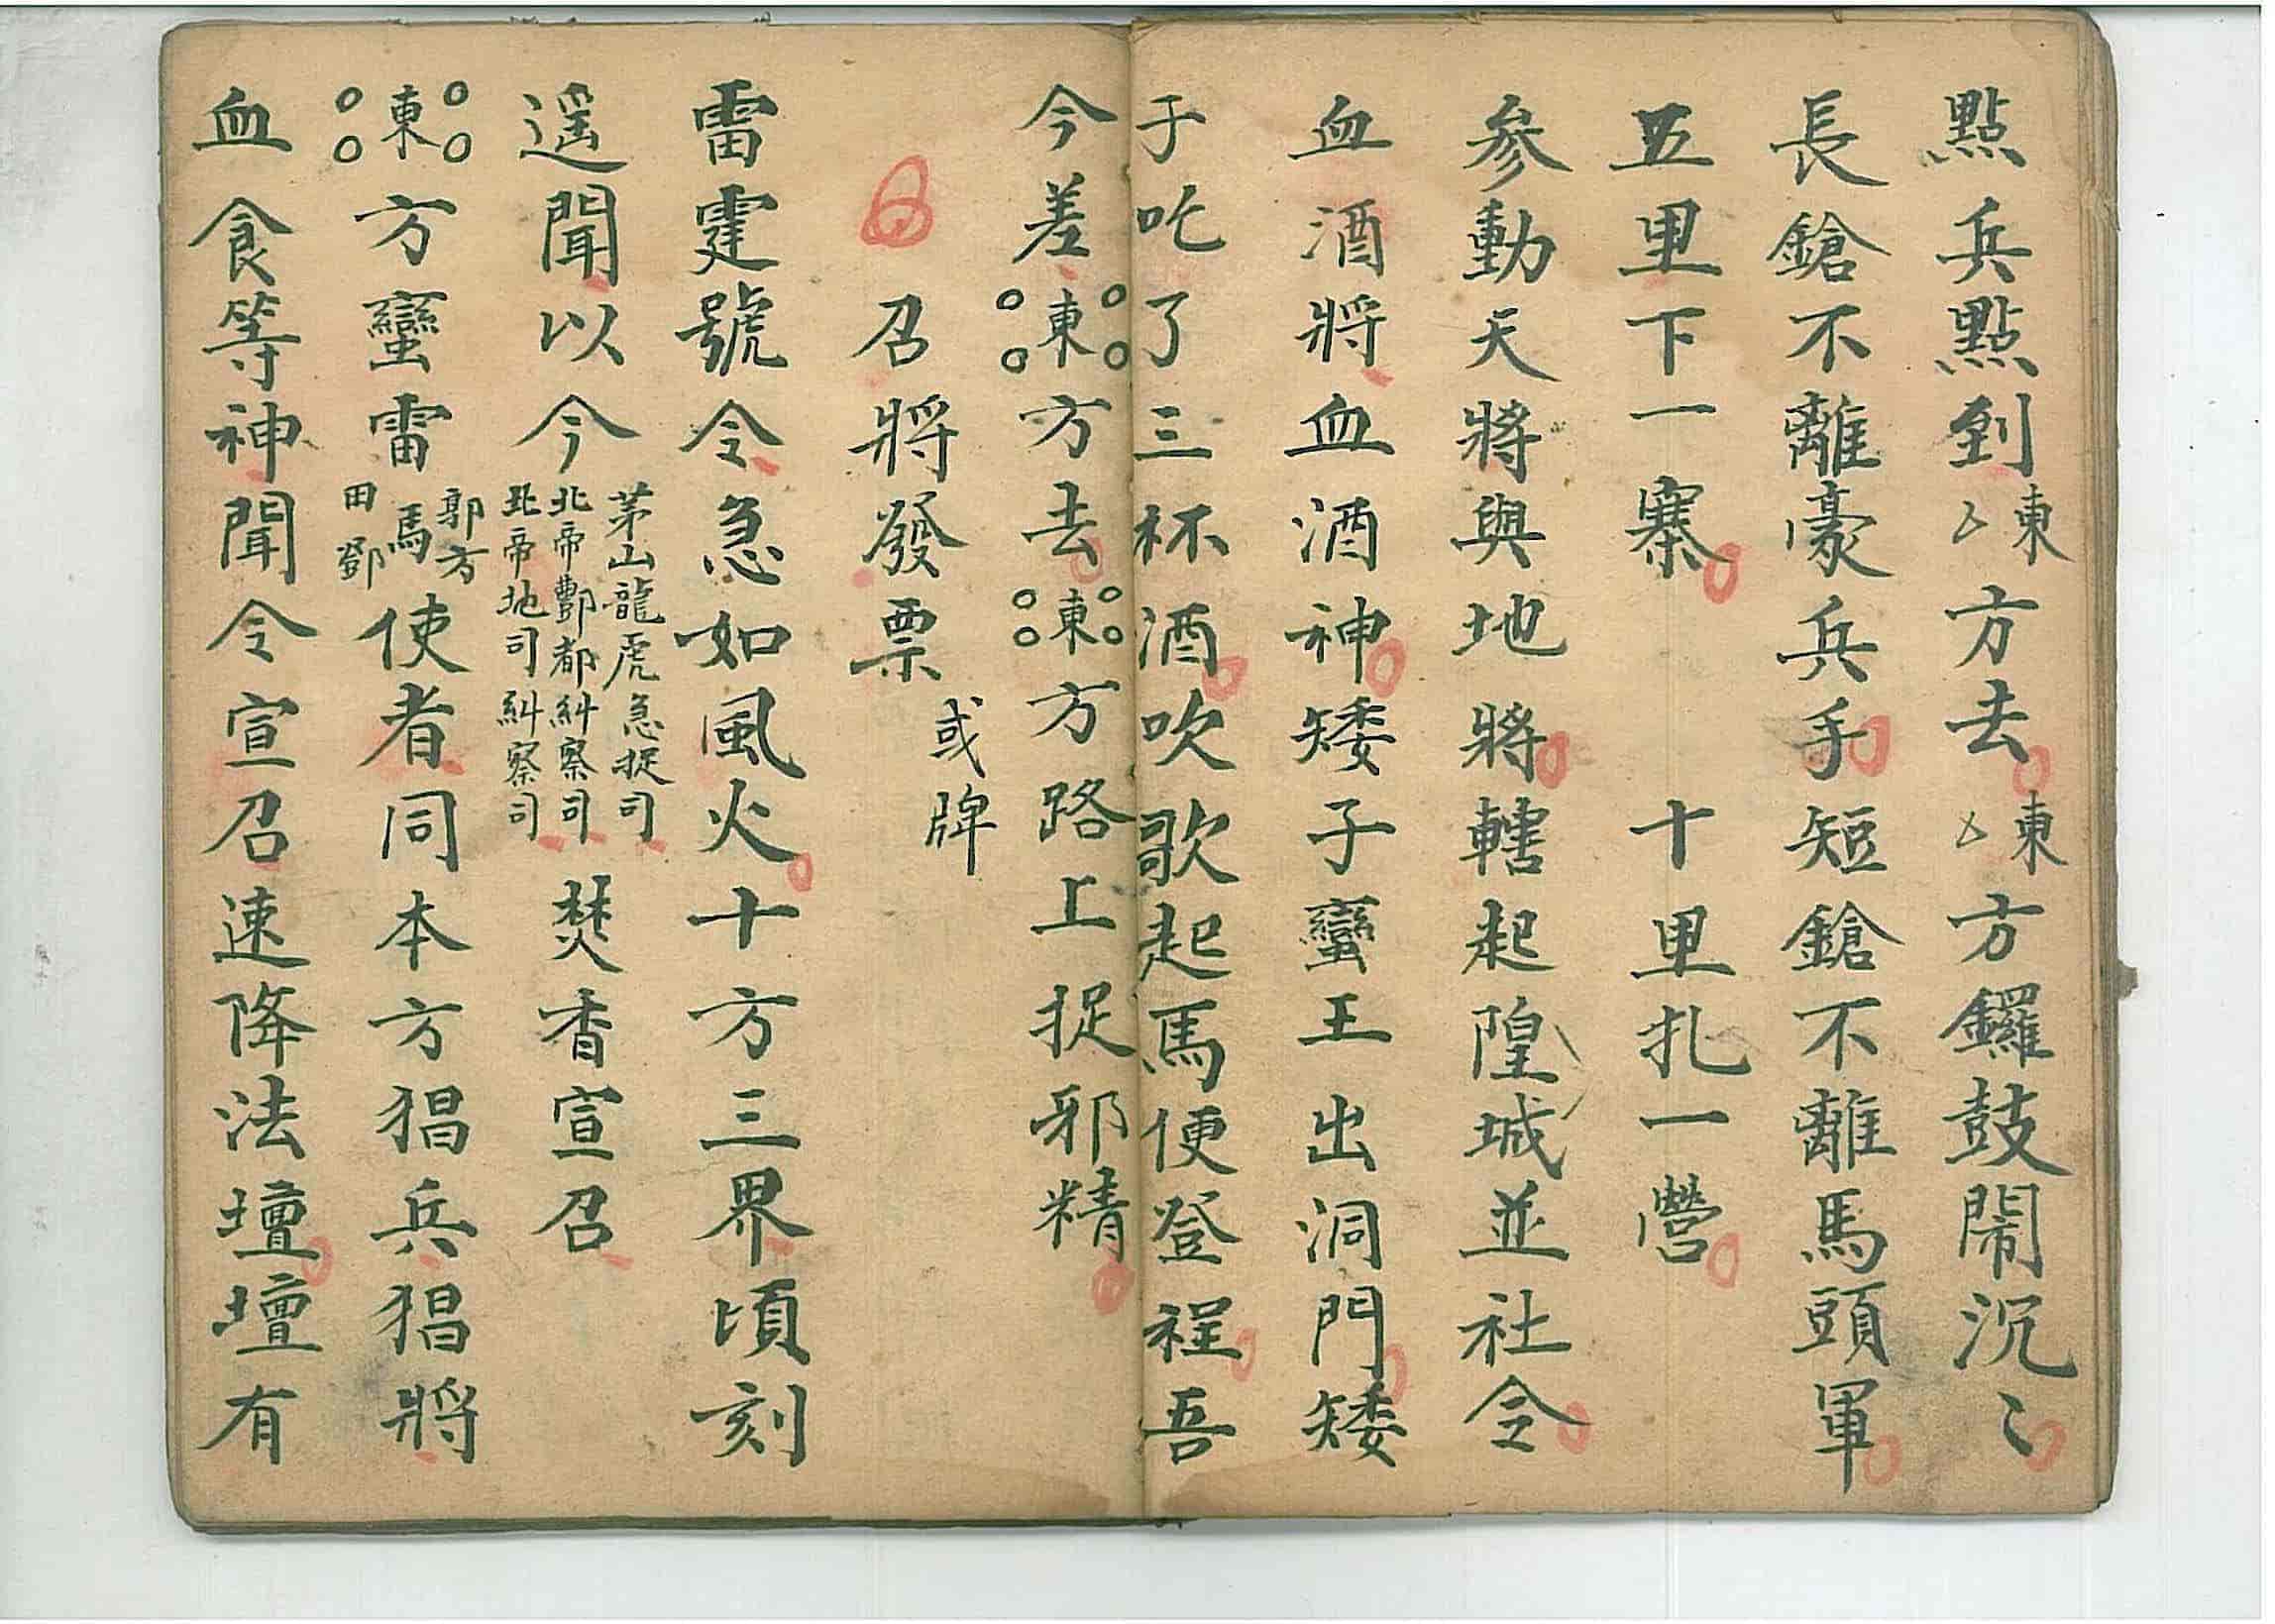 點兵點到東〻方去東〻方鑼鼓鬧沉〻
長鎗不離豪兵手短鎗不離馬頭軍
五里下一寨 十里扎一營
參動天將與地將轄起隍城並社令
血酒將血酒神矮子蠻王出洞門矮
子吃了三杯酒吹歌起馬便登程吾
今差東方去東方路上捉邪精
召將發票 或牌
雷霆號令急如風火十方三界頃刻
遥聞以今茅山龍虎急捉司北帝酆都糾察司北帝地司糾察司焚香宣召
東方蠻雷郭方馬田鄧使者同本方猖兵猖將
血食等神聞令宣召速降法壇壇有